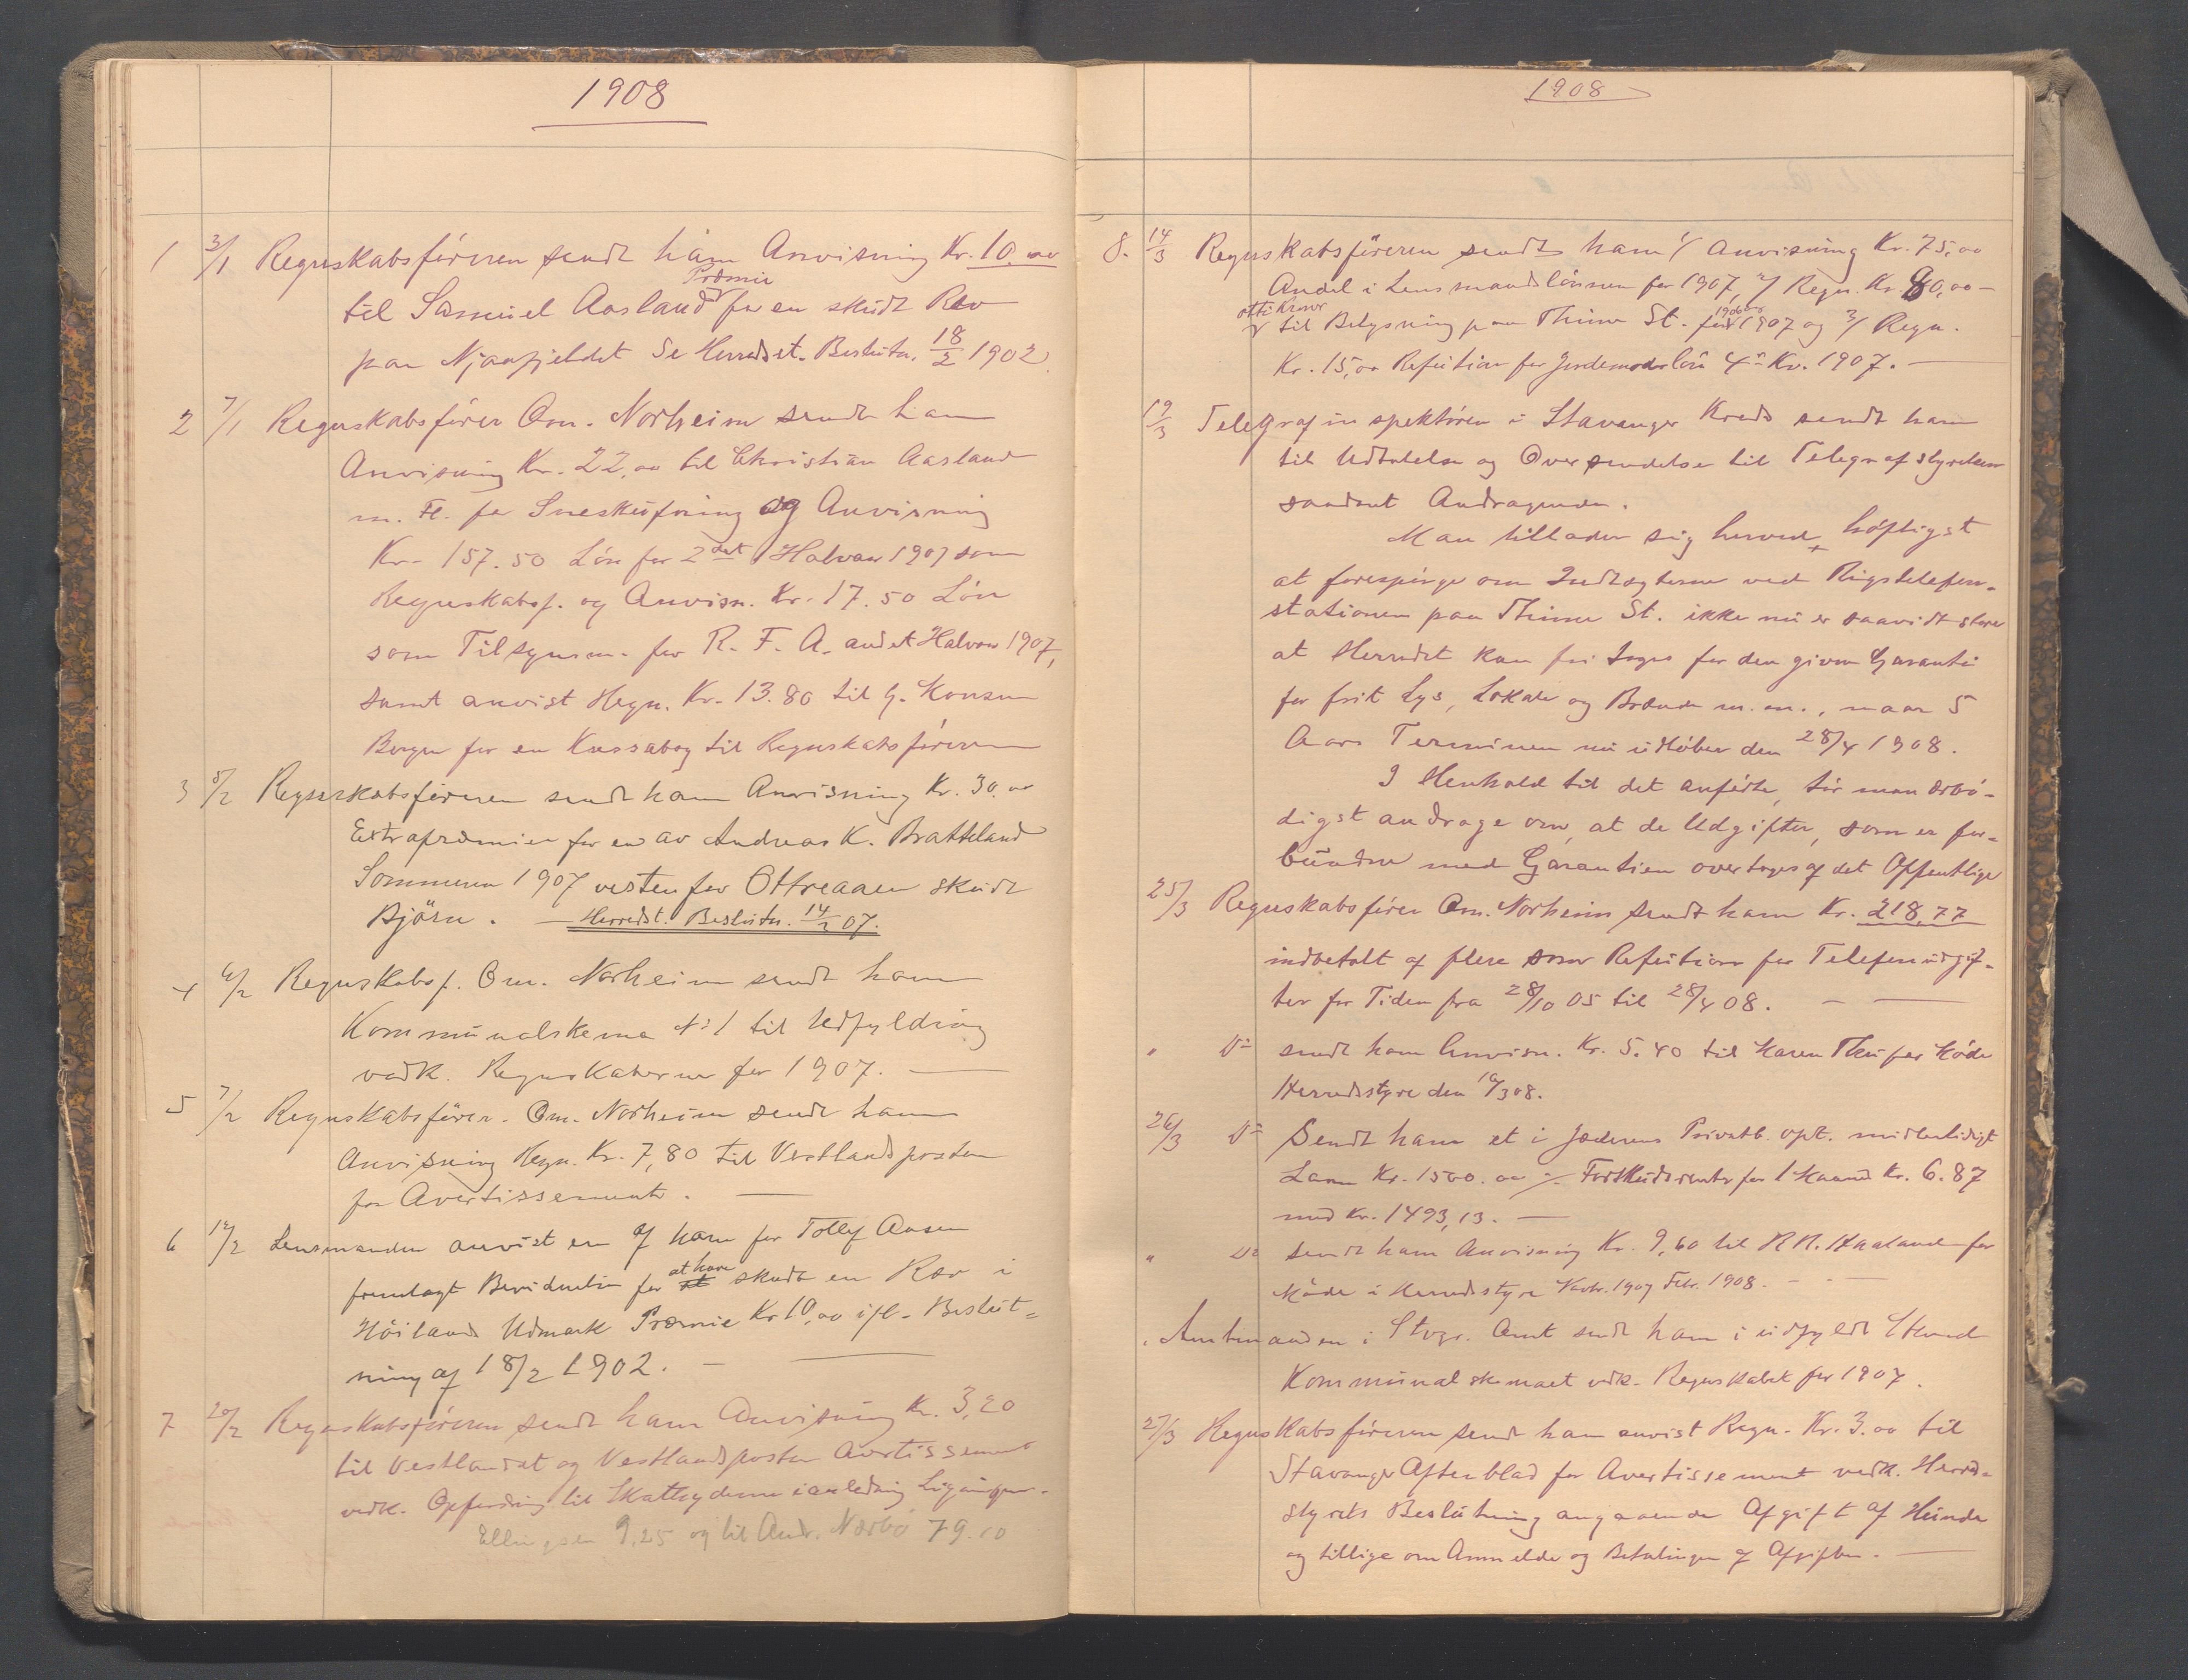 1908
1 3/1 Regnskabsføreren sendt ham Anvisning Kr. 10.00
Præmie
til Samuel Aasland for en skudt Ræv
paa Njaafjeldet Se Herredst. Beslutn. 18/2 1902.
2 7/1 Regnskabsfører Om. Norheim sendt ham
Anvisning Kr. 22,00 til Christian Aasland
m. Fl. for Sneskufning og Anvisning
Kr. 157.50 Løn for 2det Halvaar 1907 som
Regnskabsf. og Anvisn. Kr. 17.50 Løn
som Tilsynsm. for R. F. A. andet Halvaar 1907,
samt anvist Regn. Kr. 13.80 til G. Konsum
Bergen for en Kassabog til Regnskabsføreren
3 5/2 Regnskabsføreren sendt ham Anvisning Kr. 30.00
Extrapræmie for en av Andreas K. Bratteland
Sommeren 1907 vestenfor Ottreaaen skudt
Bjørn. — Herredst. Beslutn. 14/2 07.
4 6/2 Regnskabsf. Om. Norheim sendt ham
Kommunalskema No 1 til Udfylding
vedk. Regnskaberne for 1907. —
5 7/2 Regnskabsfører. Om. Norheim sendt ham
Anvisning Regn. Kr. 7,80 til Vestlandsposten
for Avertissement. —
6 12/2 Lensmanden anvist en af ham for Tollef Aasen
at have
fremlagt Bevidnelse for at skudt en Ræv i
Høiland Udmark Præmie Kr 10,00 ifl. Beslut=
ning af 18/2 1902. — —
7 20/2 Regnskabsføreren sendt ham Anvisning Kr. 3,20
til Vestlandet og Vestlandsposten Avertissement
vedk. Opfordring til Skatteyderne i anledning Ligningen.
Ellingsen 9,25 og til Andr. Nærbø 79.10
1908
8. 14/3 Regnskabsføreren sendt ham 1/ Anvisning Kr. 75,00
Andel i Lensmandslønnen for 1907, 2/ Regn. Kr. 80,00 —
otti Kroner
til Belysning paa Thime St. for 1907 og 3/ Regn.
Kr. 15,00 Refution for Jordemoderløn 4de Kv. 1907. —
19/3 Telegrafinspektøren i Stavanger Kreds sendt ham
til Udtalelse og Oversendelse til Telegrafstyrelsen
saadant Andragende.
Man tillader sig herved høfligst
at forespørge om Indtægterne ved Rigstelefon-
stationen paa Thime St. ikke nu er saavidt store
at Herredet kan fritages for den given Garanti
for frit Lys, Lokale og Brænde m.m., naar 5
Aars Terminen nu utløber den 28/4 1908.
I Henhold til det anførte, tør man ærbø-
digst andrage om, at de Udgifter, som er for-
bundne med Garantien overtages af det Offentlige
25/3 Regnskabsfører Om. Norheim sendt ham Kr. 218,77
indbetalt af flere som Refution for Telefonudgif-
ter for Tiden fra 28/10 05 til 28/4 08. — —
" Do sendt ham Anvisn. Kr. 5.40 til Karen Thu for Møde
Herredsstyre den 10/3 08.
26/3 Do Sendt ham et i Jæderens Privatb. opt. midlertidigt
Laan Kr. 1500.00 ÷ Forskudsrente for 1 Maaned Kr. 6.87
med Kr. 1493,13. —
" Do sendt ham Anvisning Kr. 9,60 til R N. Haaland for
Møde i Herredsstyre Novbr. 1907 Febr. 1908. — —
" Amtmanden i Stvgr. Amt sendt ham i udfyldt Stand
Kommunalskemaet vdk. Regnskabet for 1907.
27/3 Regnskabsføreren sendt ham anvist Regn. Kr. 3.00 til
Stavanger Aftenblad for Avertissement vedk. Herreds-
styrets Beslutning angaaende Afgift af Hunde
og tillige om Anmeldelse og Betalingen af Afgiften. —